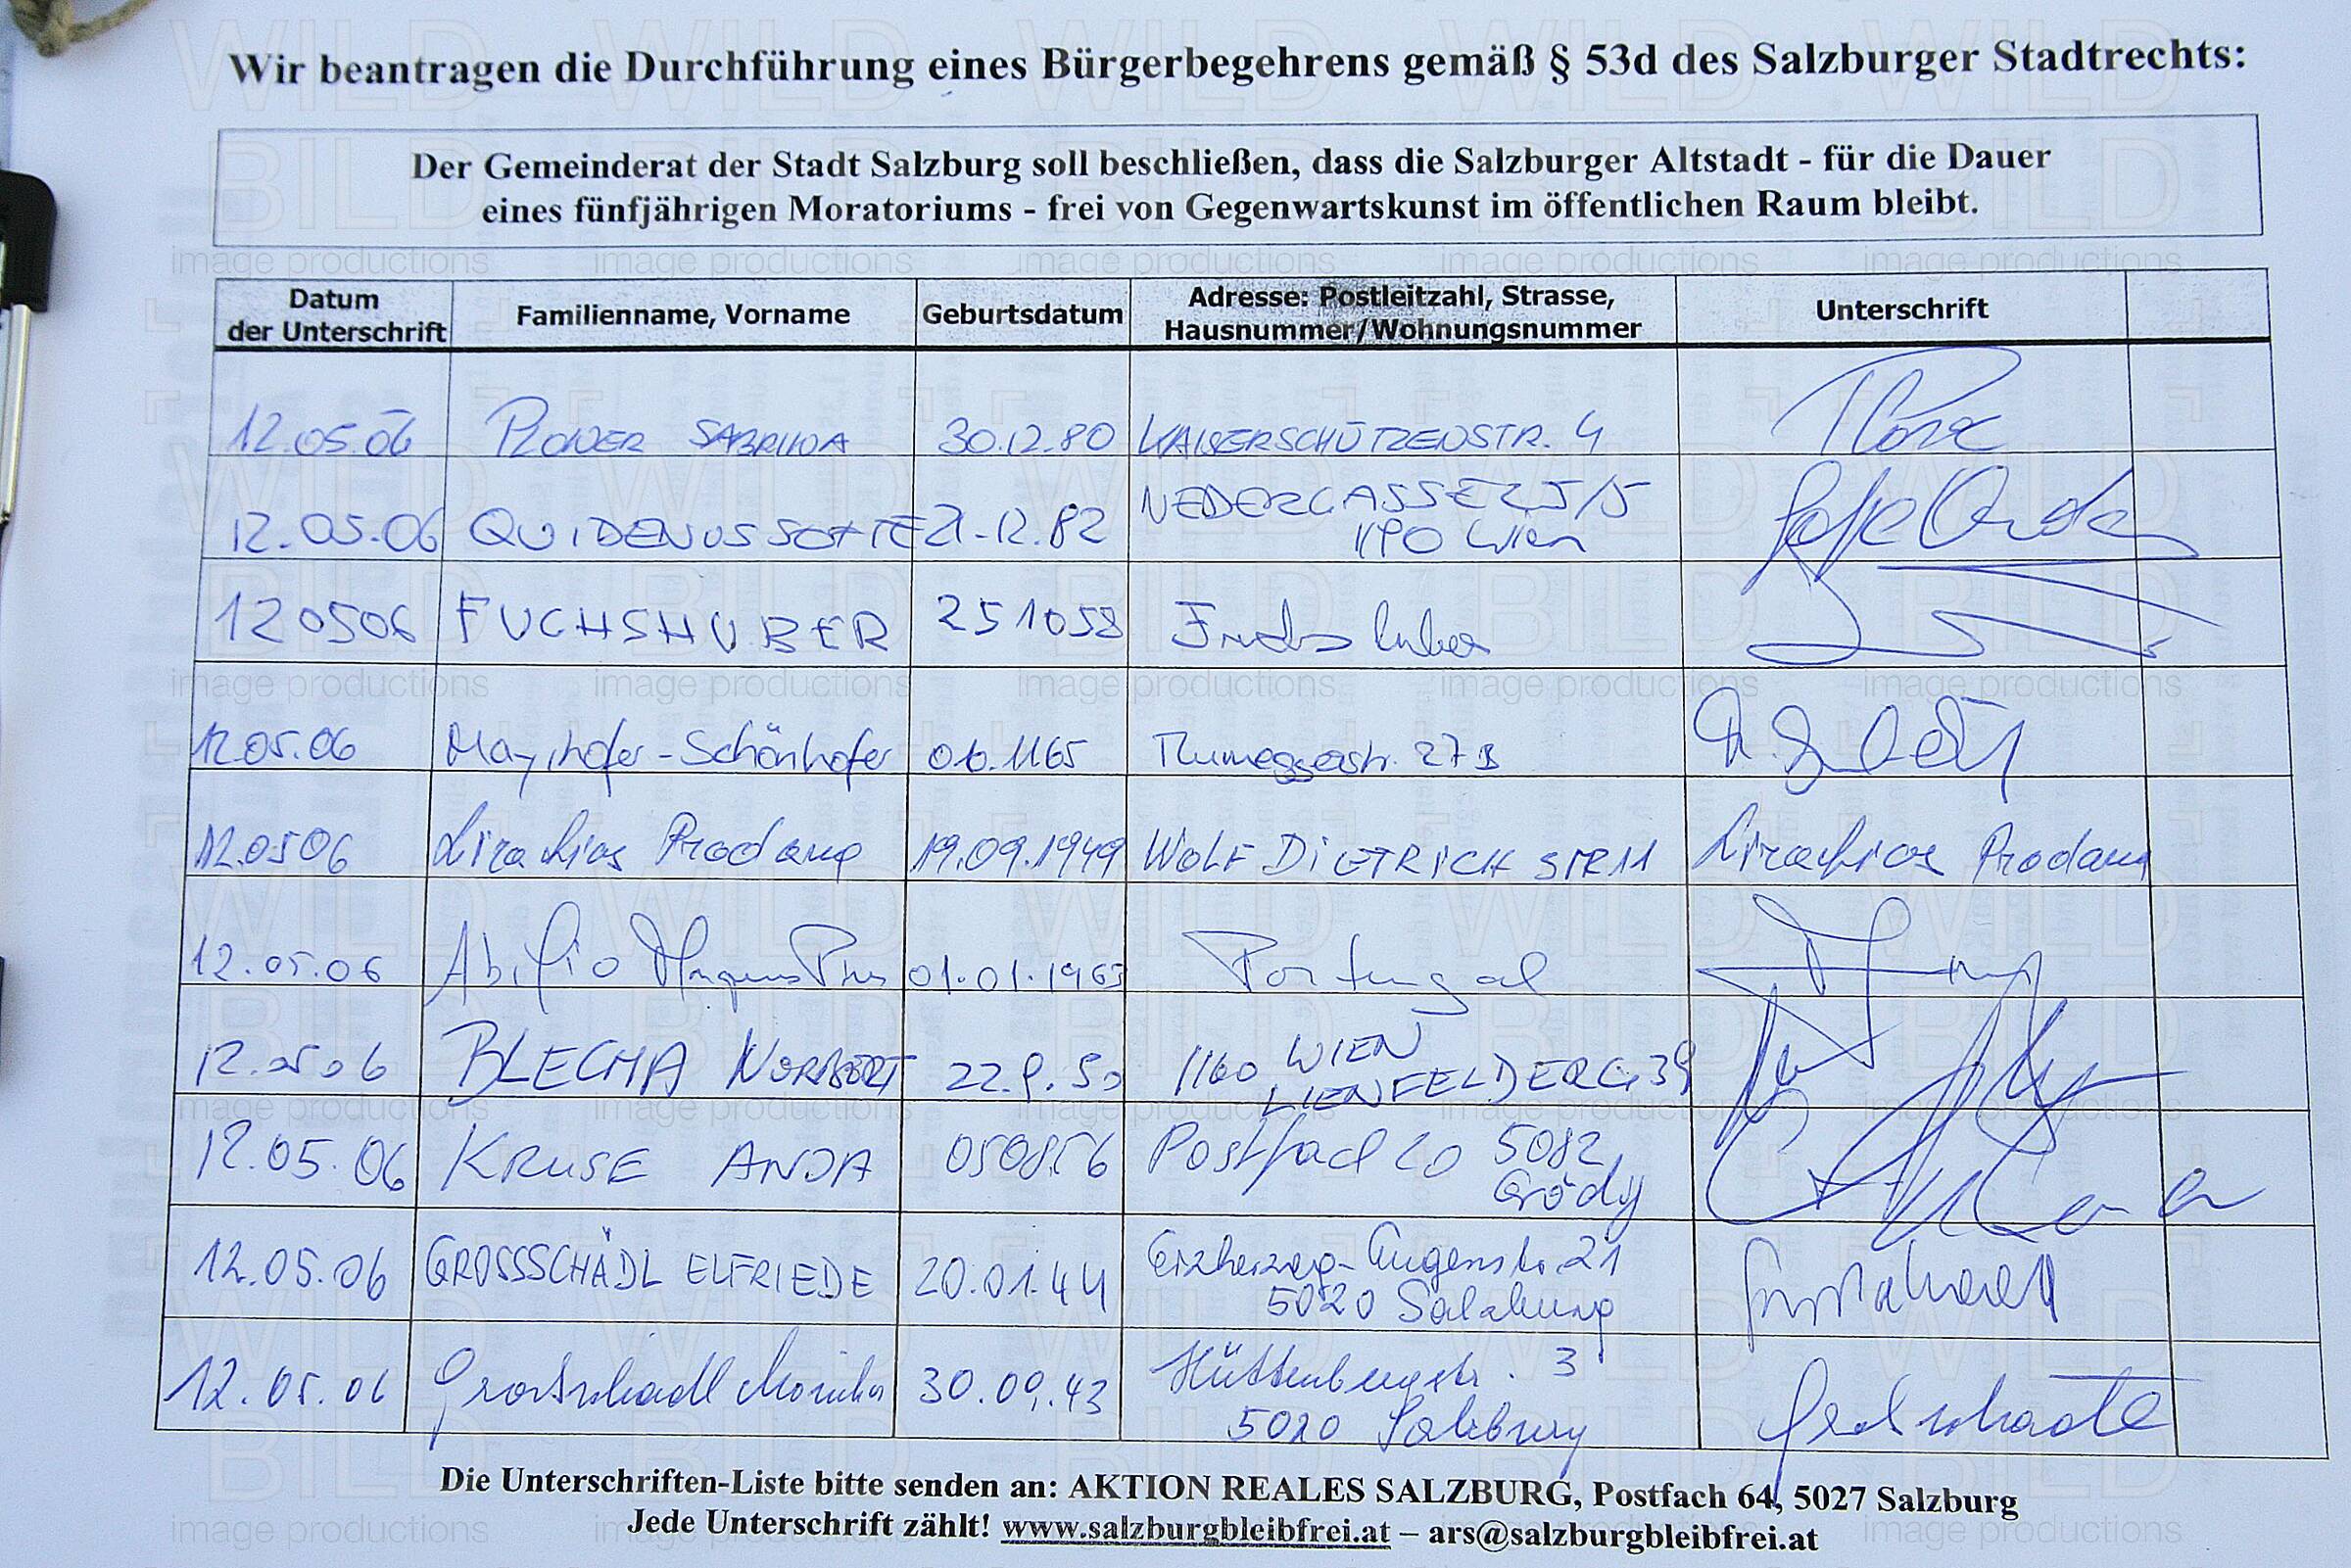 Wir beantragen die Durchführung eines Bürgerbegehrens gemäß § 53d des Salzburger Stadtrechts:
Der Gemeinderat der Stadt Salzburg soll beschließen, dass die Salzburger Altstadt - für die Dauer
eines fünfjährigen Moratoriums - frei von Gegenwartskunst im öffentlichen Raum bleibt.
Datum der Unterschrift Familienname, Vorname Geburtsdatum Adresse: Postleitzahl, Strasse, Hausnummer/Wohnungsnummer Unterschrift
12.05.06 PLONER SABRINA 30.12.80 KAISERSCHÜTZENSTR. 4
12.05.06 QUIDENUS SOFIE 21.12.82 NEDERGASSE 25/5
1190 Wien
120506 FUCHSHUBER 251058 Fuchshuber
12.05.06 Mayrhofer-Schönhofer 06.1165 27B
12.0506 Prodang 19.09.1949 WOLF DIETRICH STR 11 Prodang
12.05.06 Abilio 01.01.1963 Portugal
12.05 06 BLECHA NORBERT 22.9.50 1160 WIEN
LIENFELDERG 39
12.05.06 KRUSE ANJA 050856 Postfach 20 5082
Grödig
12.05.06 GROSSSCHÄDL ELFRIEDE 20.01.44 Erzherzog-Eugenstr. 21
5020 Salzburg
12.05.06 Grossschädl Monika 30.09.43 Hüttenbergstr. 3
5020 Salzburg
Die Unterschriften-Liste bitte senden an: AKTION REALES SALZBURG, Postfach 64, 5027 Salzburg
Jede Unterschrift zählt! www.salzburgbleibfrei.at – ars@salzburgbleibfrei.at
WILD
BILD
image productions